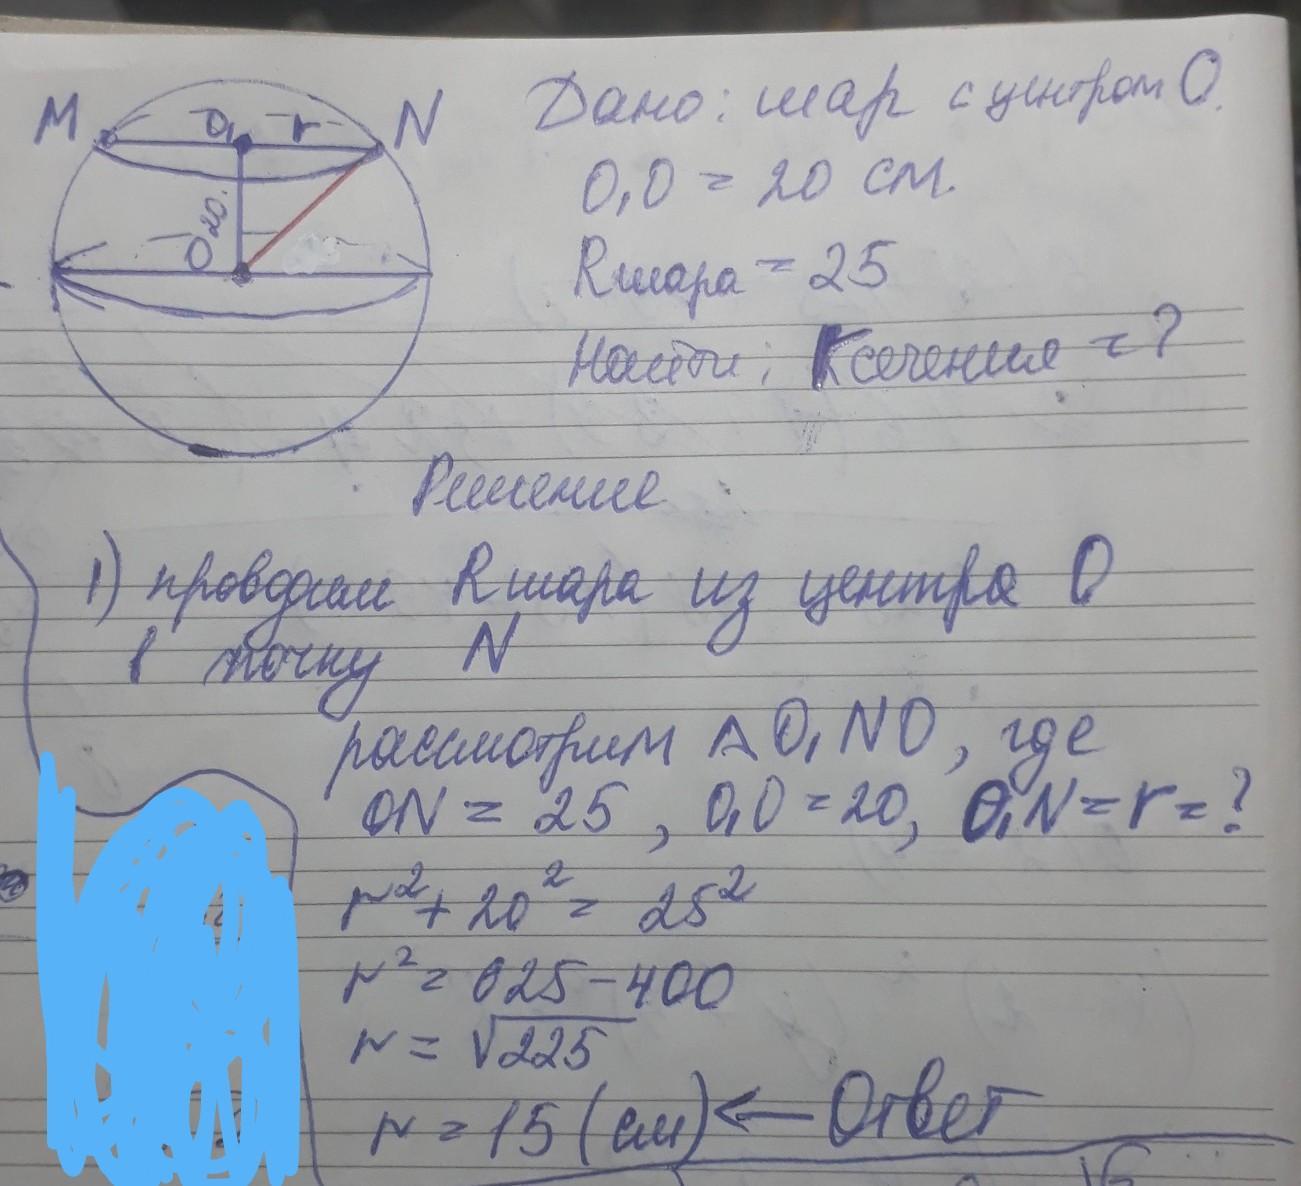 M O₁ r N
20
O
Дано: шар с центром О.
O₁O = 20 см.
Rшара = 25
Найти: rсечения = ?
Решение
1) проводим Rшара из центра О
в точку N
рассмотрим ΔO₁NO, где
ON = 25, O₁O = 20, O₁N = r = ?
r² + 20² = 25²
r² = 625 - 400
r = √225
r = 15 (см) ← Ответ